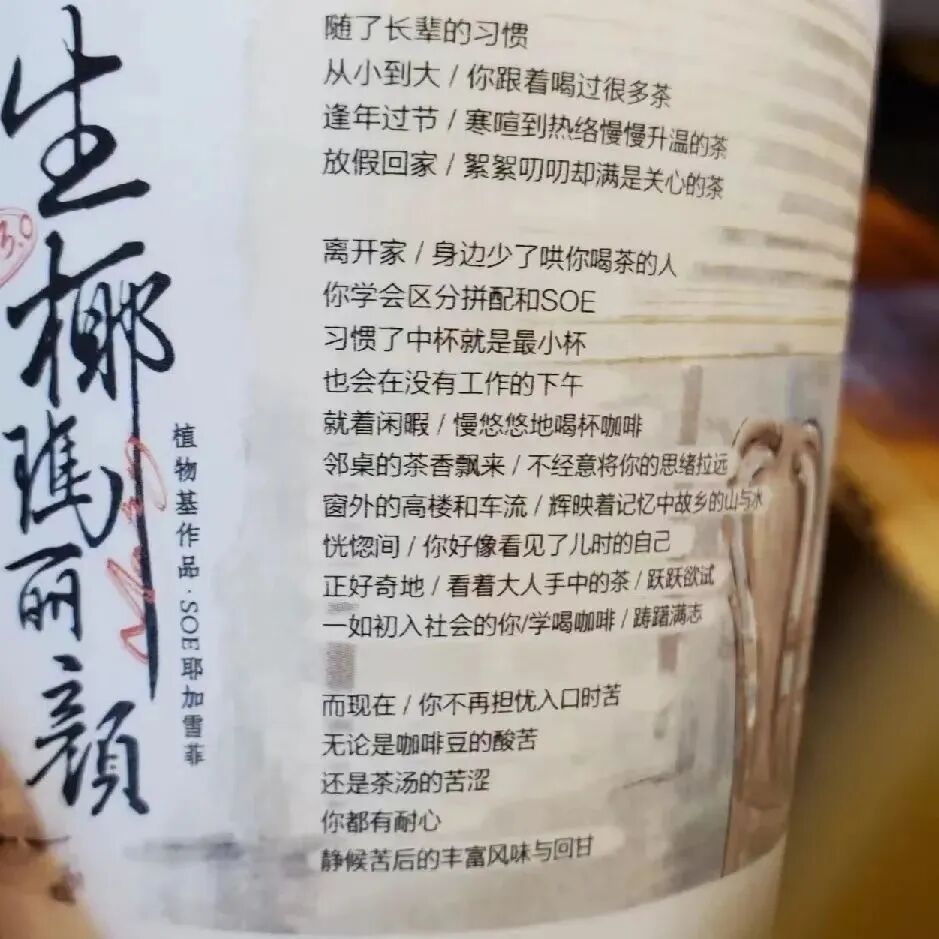 生椰瑪丽颜
3.0
植物基作品·SOE耶加雪菲
随了长辈的习惯
从小到大 / 你跟着喝过很多茶
逢年过节 / 寒暄到热络慢慢升温的茶
放假回家 / 絮絮叨叨却满是关心的茶
离开家 / 身边少了哄你喝茶的人
你学会区分拼配和SOE
习惯了中杯就是最小杯
也会在没有工作的下午
就着闲暇 / 慢悠悠地喝杯咖啡
邻桌的茶香飘来 / 不经意将你的思绪拉远
窗外的高楼和车流 / 辉映着记忆中故乡的山与水
恍惚间 / 你好像看见了儿时的自己
正好奇地 / 看着大人手中的茶 / 跃跃欲试
一如初入社会的你/学喝咖啡 / 踌躇满志
而现在 / 你不再担忧入口时苦
无论是咖啡豆的酸苦
还是茶汤的苦涩
你都有耐心
静候苦后的丰富风味与回甘